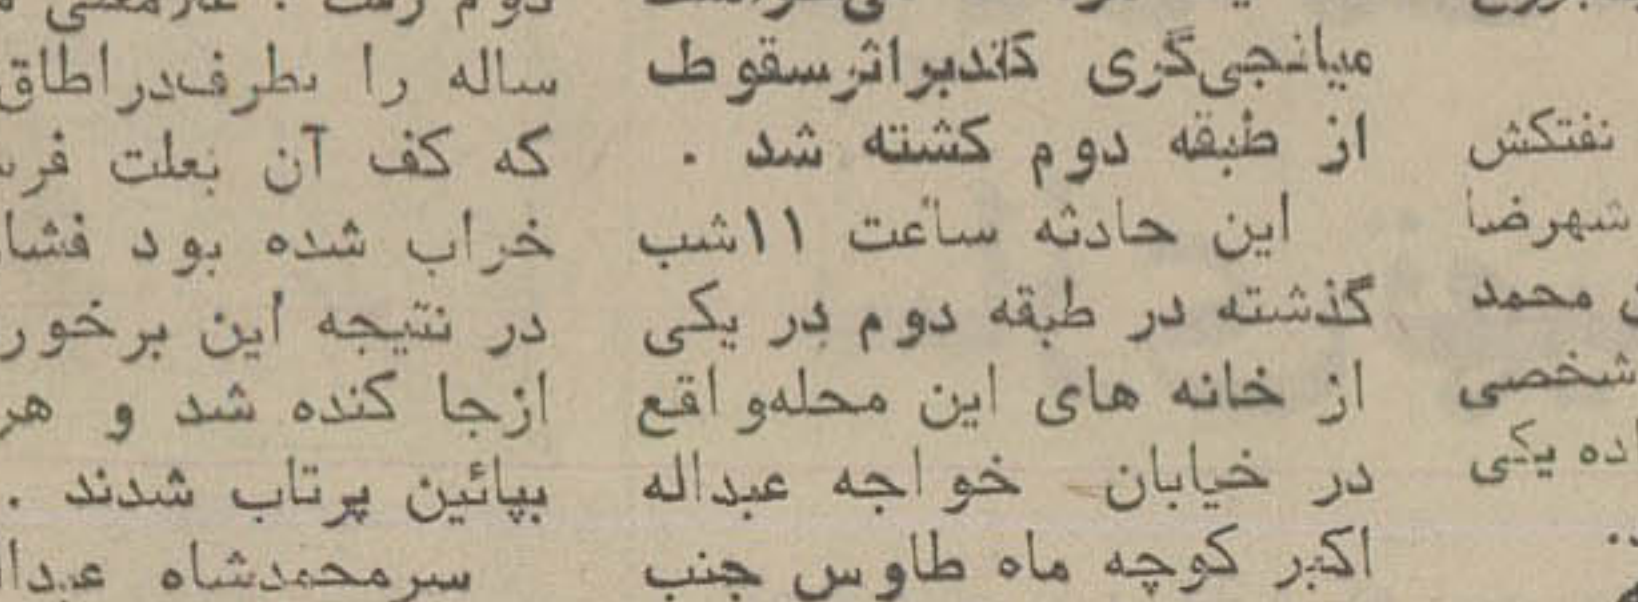 نفتکش
شهرضا
محمد
شخصی
یکی
میانجی‌گری کندبراثرسقوط
از طبقه دوم کشته شد .
این حادثه ساعت ۱۱شب
گذشته در طبقه دوم در یکی
از خانه های این محله‌واقع
در خیابان خواجه عبداله
اکبر کوچه ماه طاوس جنب
دوم رفت .
ساله را بطرف‌دراطاق
که کف آن بعلت
خراب شده بود
در نتیجه این
ازجا کنده شد و
بپائین پرتاب شدند .
سرمحمدشاه